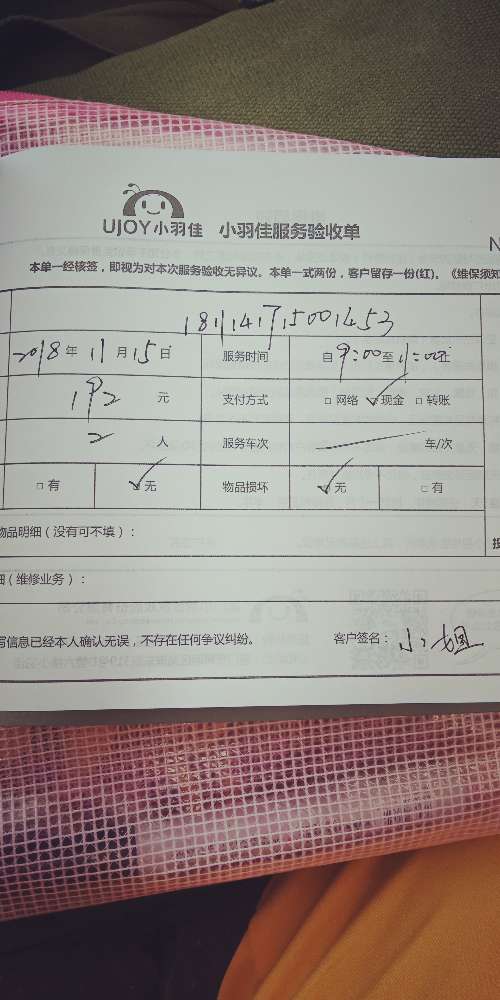 UJOY小羽佳 小羽佳服务验收单
N
本单一经核签，即视为对本次服务验收无异议。本单一式两份，客户留存一份(红)。《维保须知
1811141715001453
2018年11月15日 服务时间 自9:00至11:00止
192元 支付方式 □网络 ☑现金 □转账
2人 服务车次 车/次
□有 ☑无 物品损坏 ☑无 □有
物品明细（没有可不填）：
细（维修业务）：
写信息已经本人确认无误，不存在任何争议纠纷。 客户签名：小姐